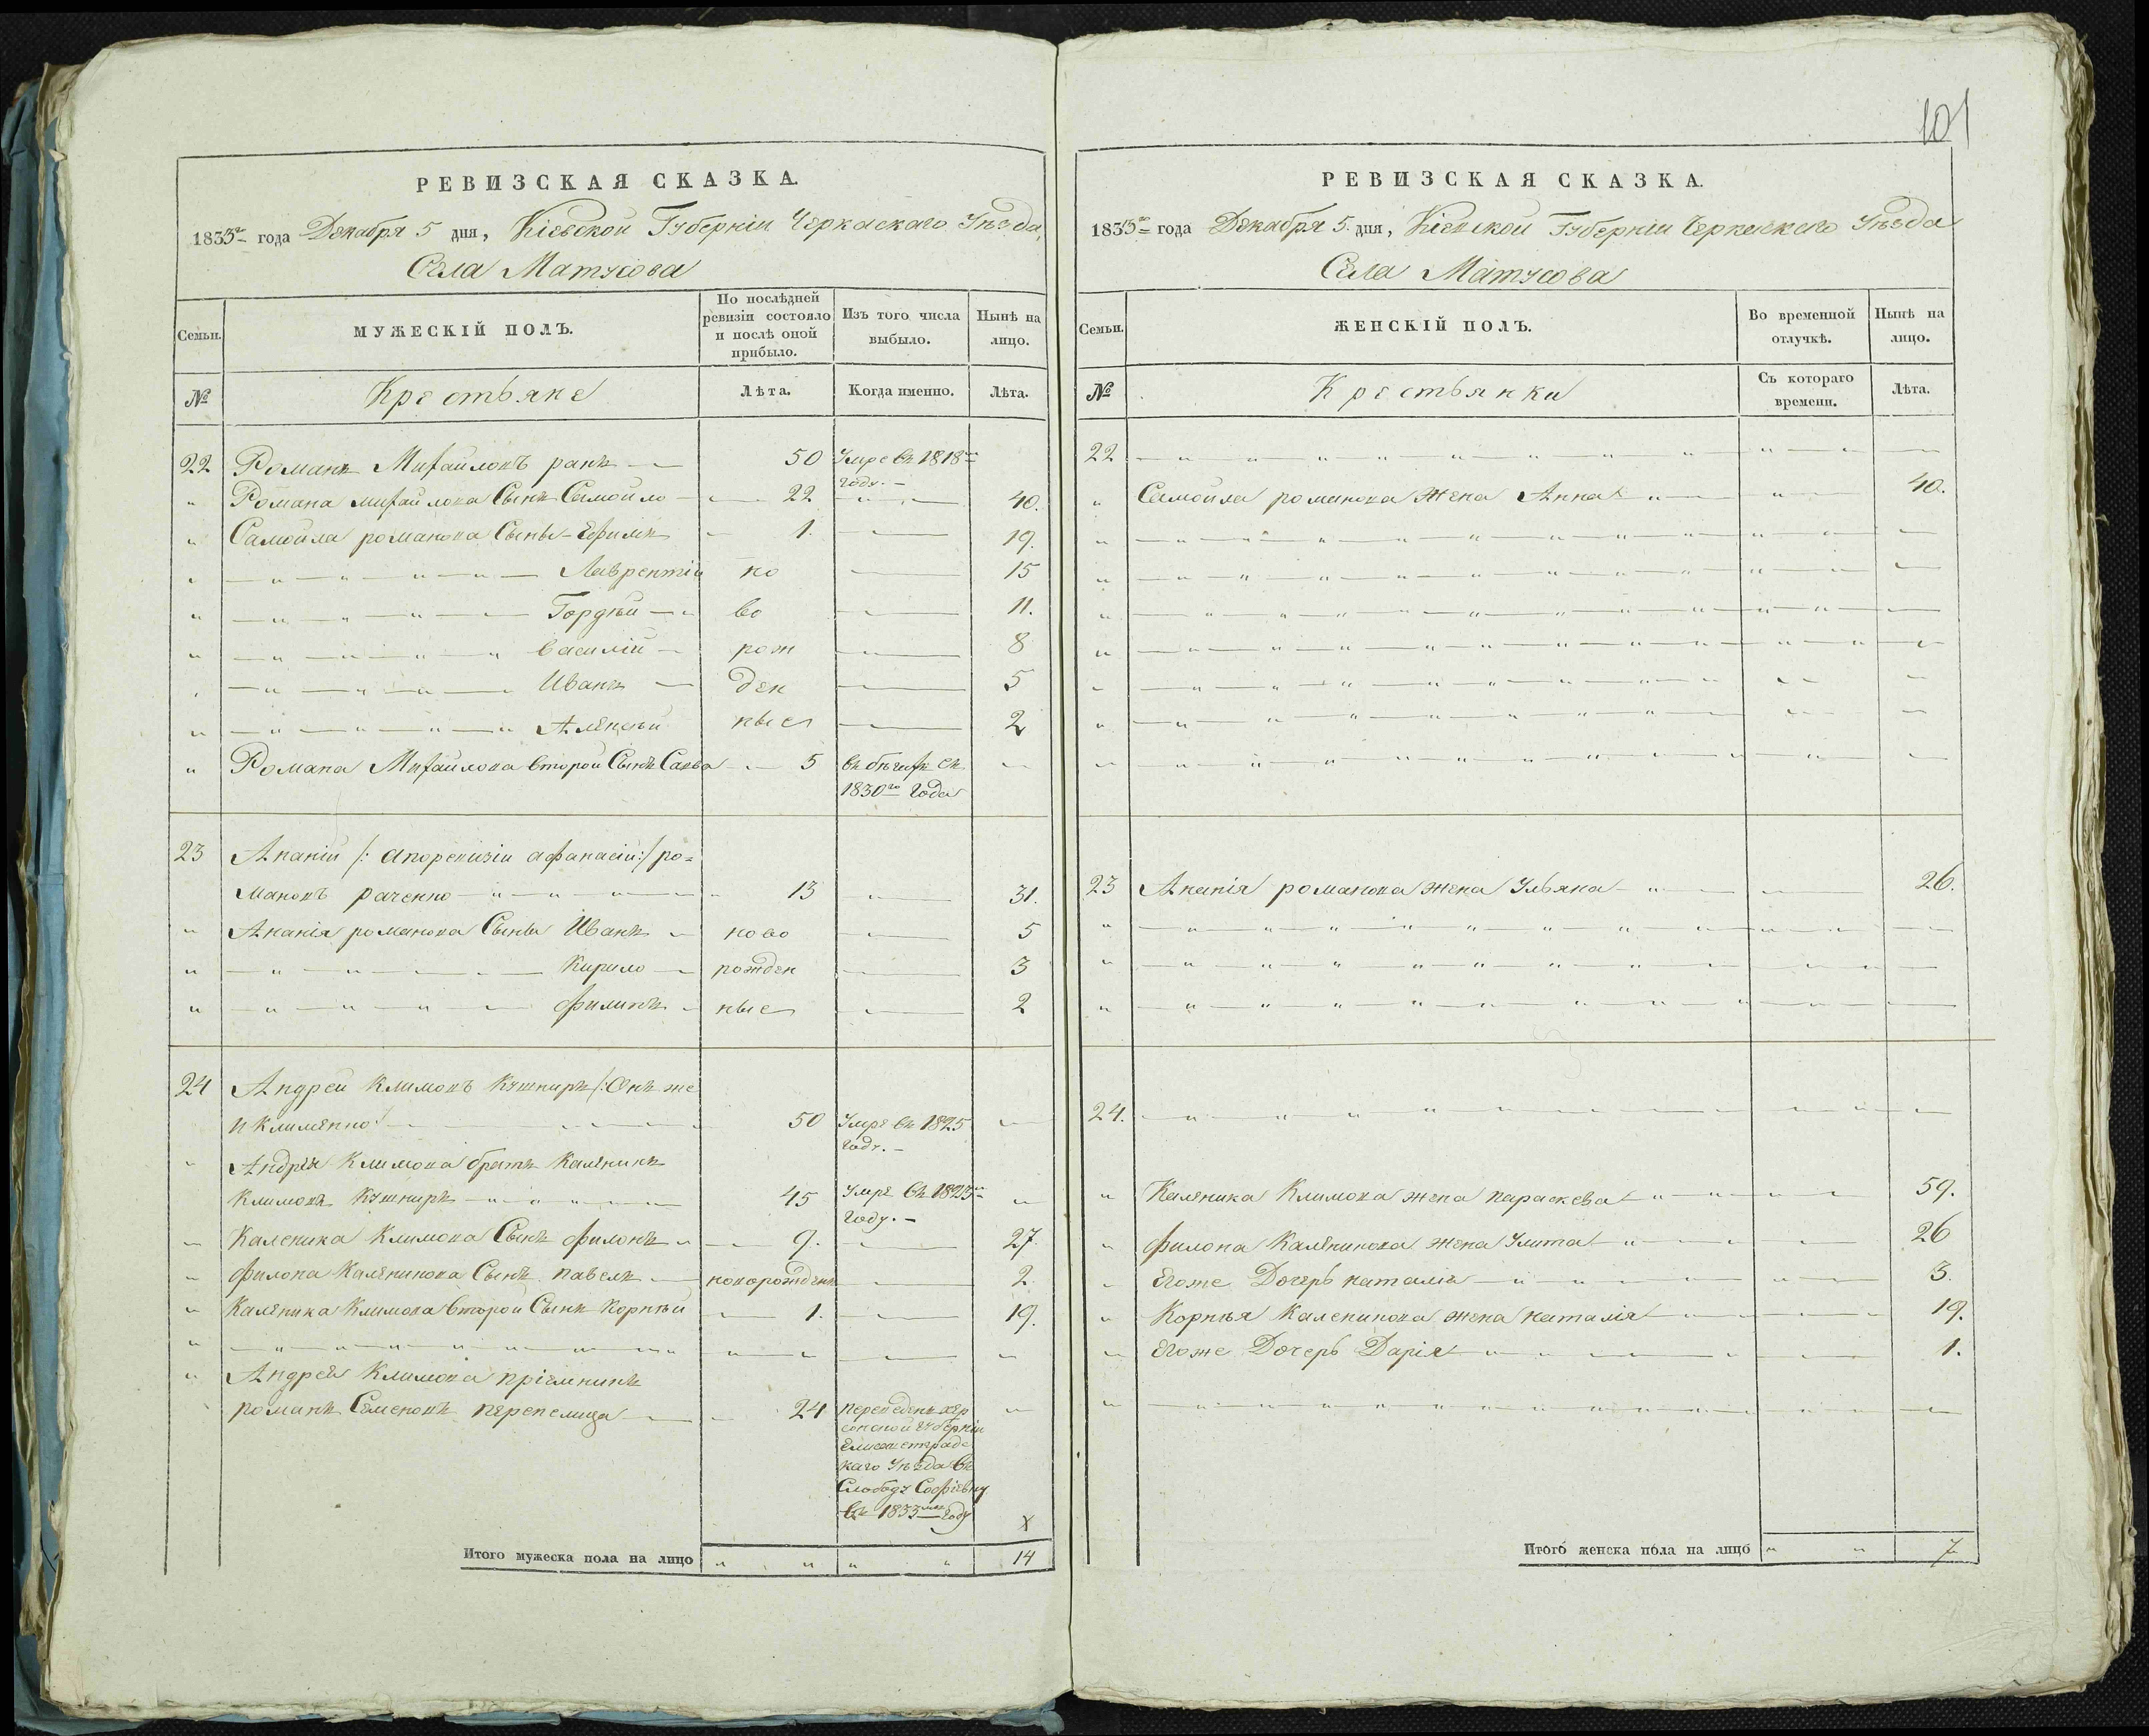 101
РЕВИЗСКАЯ СКАЗКА.
1835го года Декабря 5 дня, Кіевской Губерніи Черкаскаго Уѣзда,
Села Матусова
Семьи.
МУЖЕСКІЙ ПОЛЪ.
По послѣдней ревизіи состояло и послѣ оной прибыло.
Изъ того числа выбыло.
Нынѣ на лицо.
№
Крестьяне
Лѣта.
Когда именно.
Лѣта.
22 Романъ Михайловъ ракъ 50 Умре въ 1818м году.
Романа михайлова Сынъ Самойло 22 40.
Самойла романова Сыны Ефимъ 1. 19.
Лаврентій но 15
Гордѣй во 11.
василій рож 8
Иванъ ден 5
Алексѣй ные 2
Романа Михайлова второй Сынъ Савва 5 въ бѣгахъ съ
1830го года
23 Ананій /: апоревизіи афанасій:/ ро=
мановъ раченко 13 31.
Ананія романова Сыны Иванъ ново 5
Кирило рожден 3
филипъ ные 2
24 Андрей Климовъ Кушниръ /: Онъ же
и Клименко 50 Умре въ 1825
году.
Андрея Климова братъ Каленикъ
Климовъ Кушниръ 45 умре въ 1823м
году.
Каленика Климова Сынъ филонъ 9. 27.
филона Каленикова Сынъ павелъ новорожденъ 2
Каленика Климова второй Сынъ Корнѣй 1. 19.
Андрея Климова пріемникъ
романъ Семеновъ перепелица 24 переведенъ хер
сонской губерніи
Елисаветград
скаго Уѣзда въ
Слободу Софіевку
въ 1833мъ году
х
Итого мужеска пола на лицо 14
РЕВИЗСКАЯ СКАЗКА.
1835го года Декабря 5. дня, Кіевской Губерніи Черкаскаго Уѣзда
Села Матусова
Семьи.
ЖЕНСКІЙ ПОЛЪ.
Во временной отлучкѣ.
Нынѣ на лицо.
№
Крестьянки
Съ котораго времени.
Лѣта.
22
Самойла романова жена Анна 40.
23 Ананія романова жена Ульяна 26.
24.
Каленика Климова жена параскева 59.
филона Каленикова жена Улита 26
Егоже Дочерь наталія 3.
Корнѣя Каленикова жена наталія 19.
Егоже Дочерь Дарія 1.
Итого женска пола на лицо 7